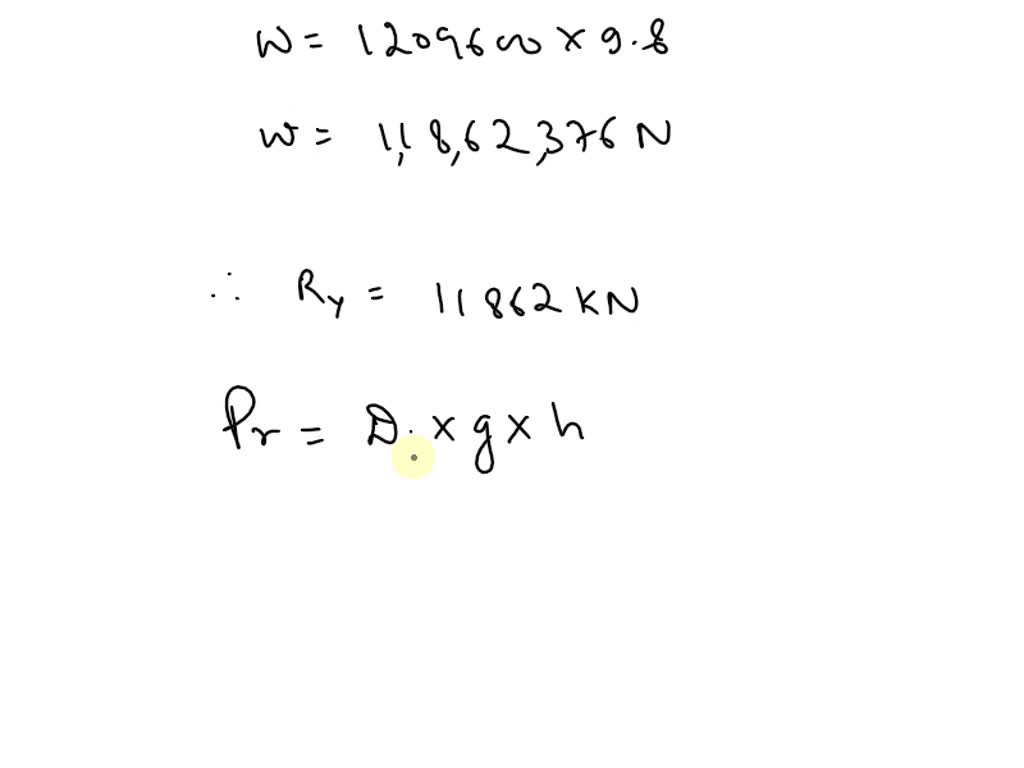 W = 1209600 × 9.8
W = 11,8,62,376 N
∴ Ry = 11862 KN
Pr = D. × g × h